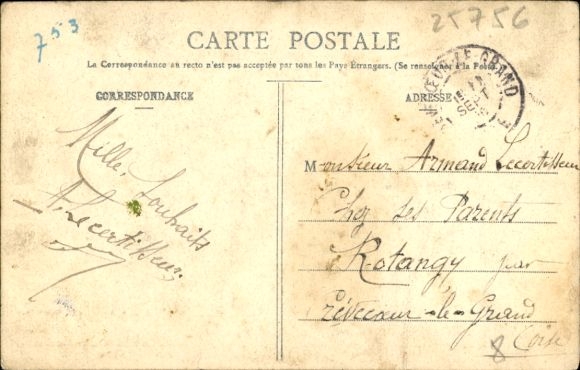 753
25756
CARTE POSTALE
La Correspondance au recto n'est pas acceptée par tous les Pays Étrangers. (Se renseigner à la Poste)
CORRESPONDANCE
ADRESSE
CŒUR-LE-GRAND
Mille Souhaits
Lecertisseur
Monsieur Armand Lecertisseur
Chez Ses Parents
Rotangy par
Crèvecœur-le-Grand
Oise
8